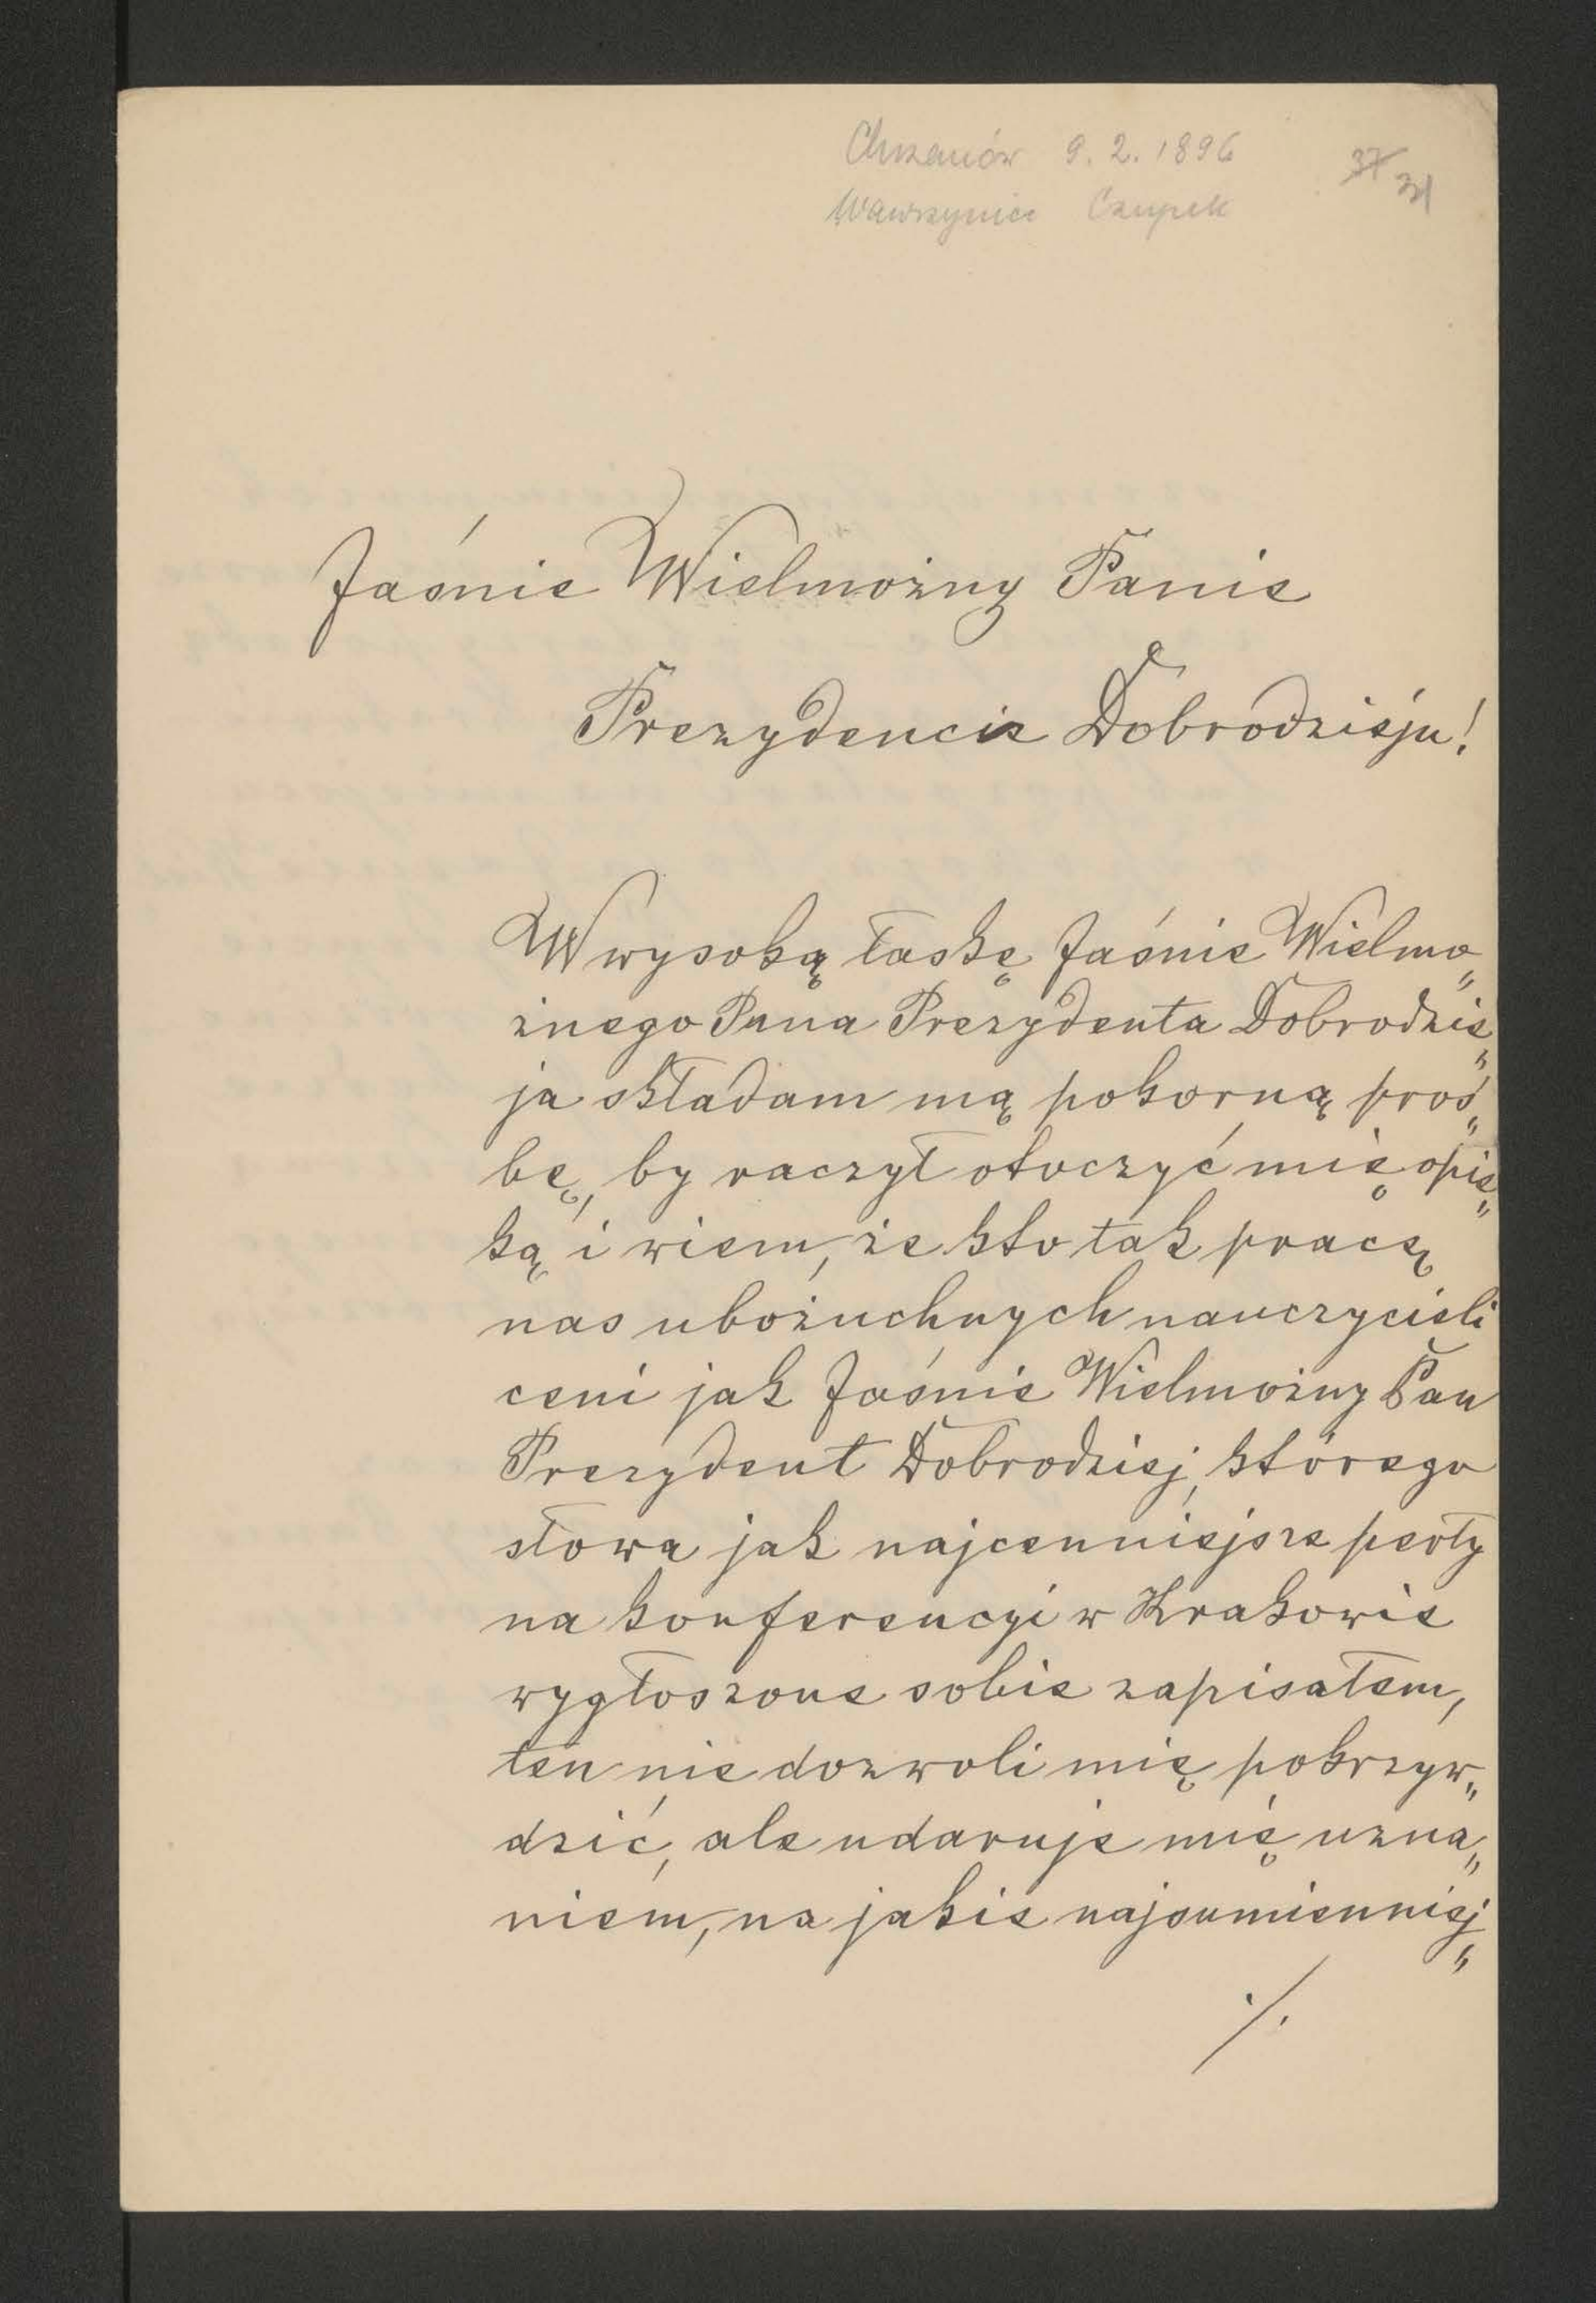 Chrzanów 9. 2. 1896
37 31
Wawrzyniec Czupek
Jaśnie Wielmożny Panie
Prezydencie Dobrodzieju!
W wysoką łaskę Jaśnie Wielmo„
żnego Pana Prezydenta Dobrodzie„
ja składam mą pokorną proś„
bę, by raczył otoczyć mię opie„
ką i wiem, że kto tak pracę
nas ubożuchnych nauczycieli
ceni jak Jaśnie Wielmożny Pan
Prezydent Dobrodziej, którego
słowa jak najcenniejsze perły
na konferencyi w Krakowie
wygłoszone sobie zapisałem,
ten nie dozwoli mię pokrzyw„
dzić, ale udaruje mię uzna„
niem, na jakie najsumienniej„
./.